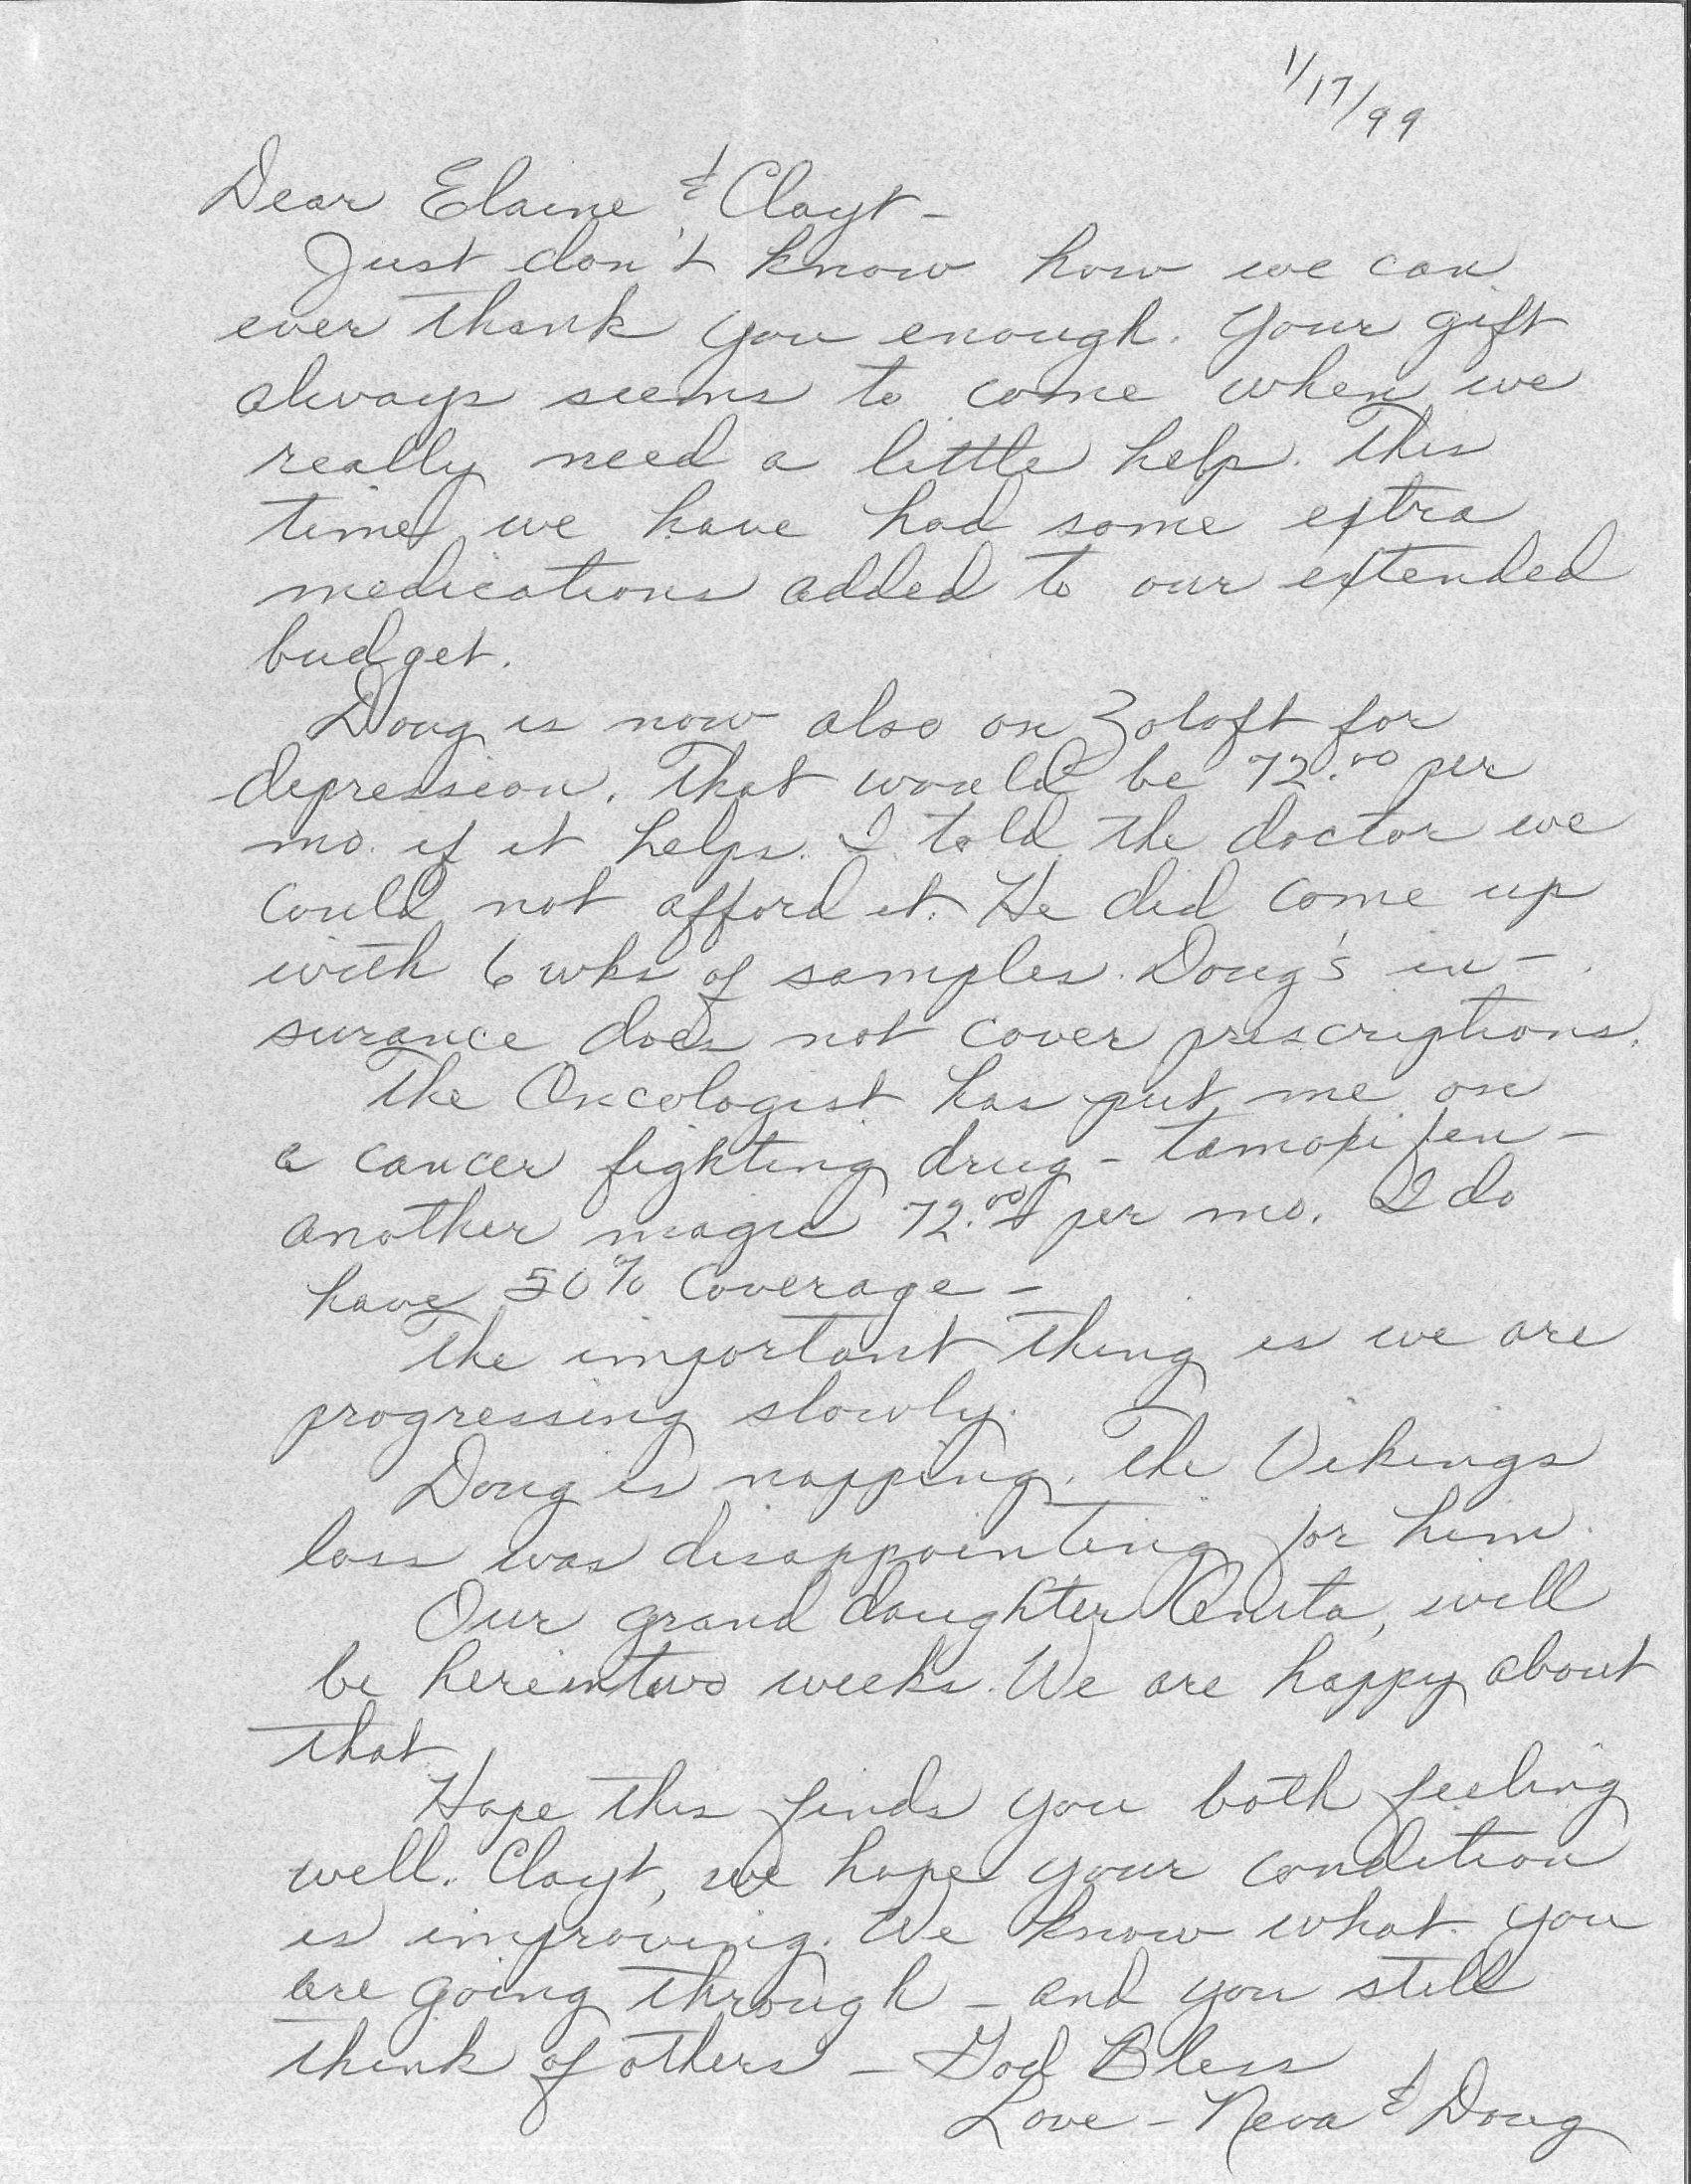 1/17/99
Dear Elaine & Clayt -
Just don't know how we can
ever thank you enough. Your gift
always seems to come when we
really need a little help. This
time we have had some extra
medications added to our extended
budget.
Doug is now also on Zoloft for
depression. That would be 72.00 per
mo. if it helps. I told the doctor we
could not afford it. He did come up
with 6 wks of samples. Doug's in-
surance does not cover prescriptions.
The Oncologist has put me on
a cancer fighting drug - tamoxifen -
another magic 72.00 per mo. I do
have 50% coverage -
The important thing is we are
progressing slowly.
Doug is napping. The Vikings
loss was disappointing for him.
Our grand daughter Anita, will
be here in two weeks. We are happy about
that.
Hope this finds you both feeling
well. Clayt, we hope your condition
is improving. We know what you
are going through - and you still
think of others - God Bless
Love - Neva & Doug